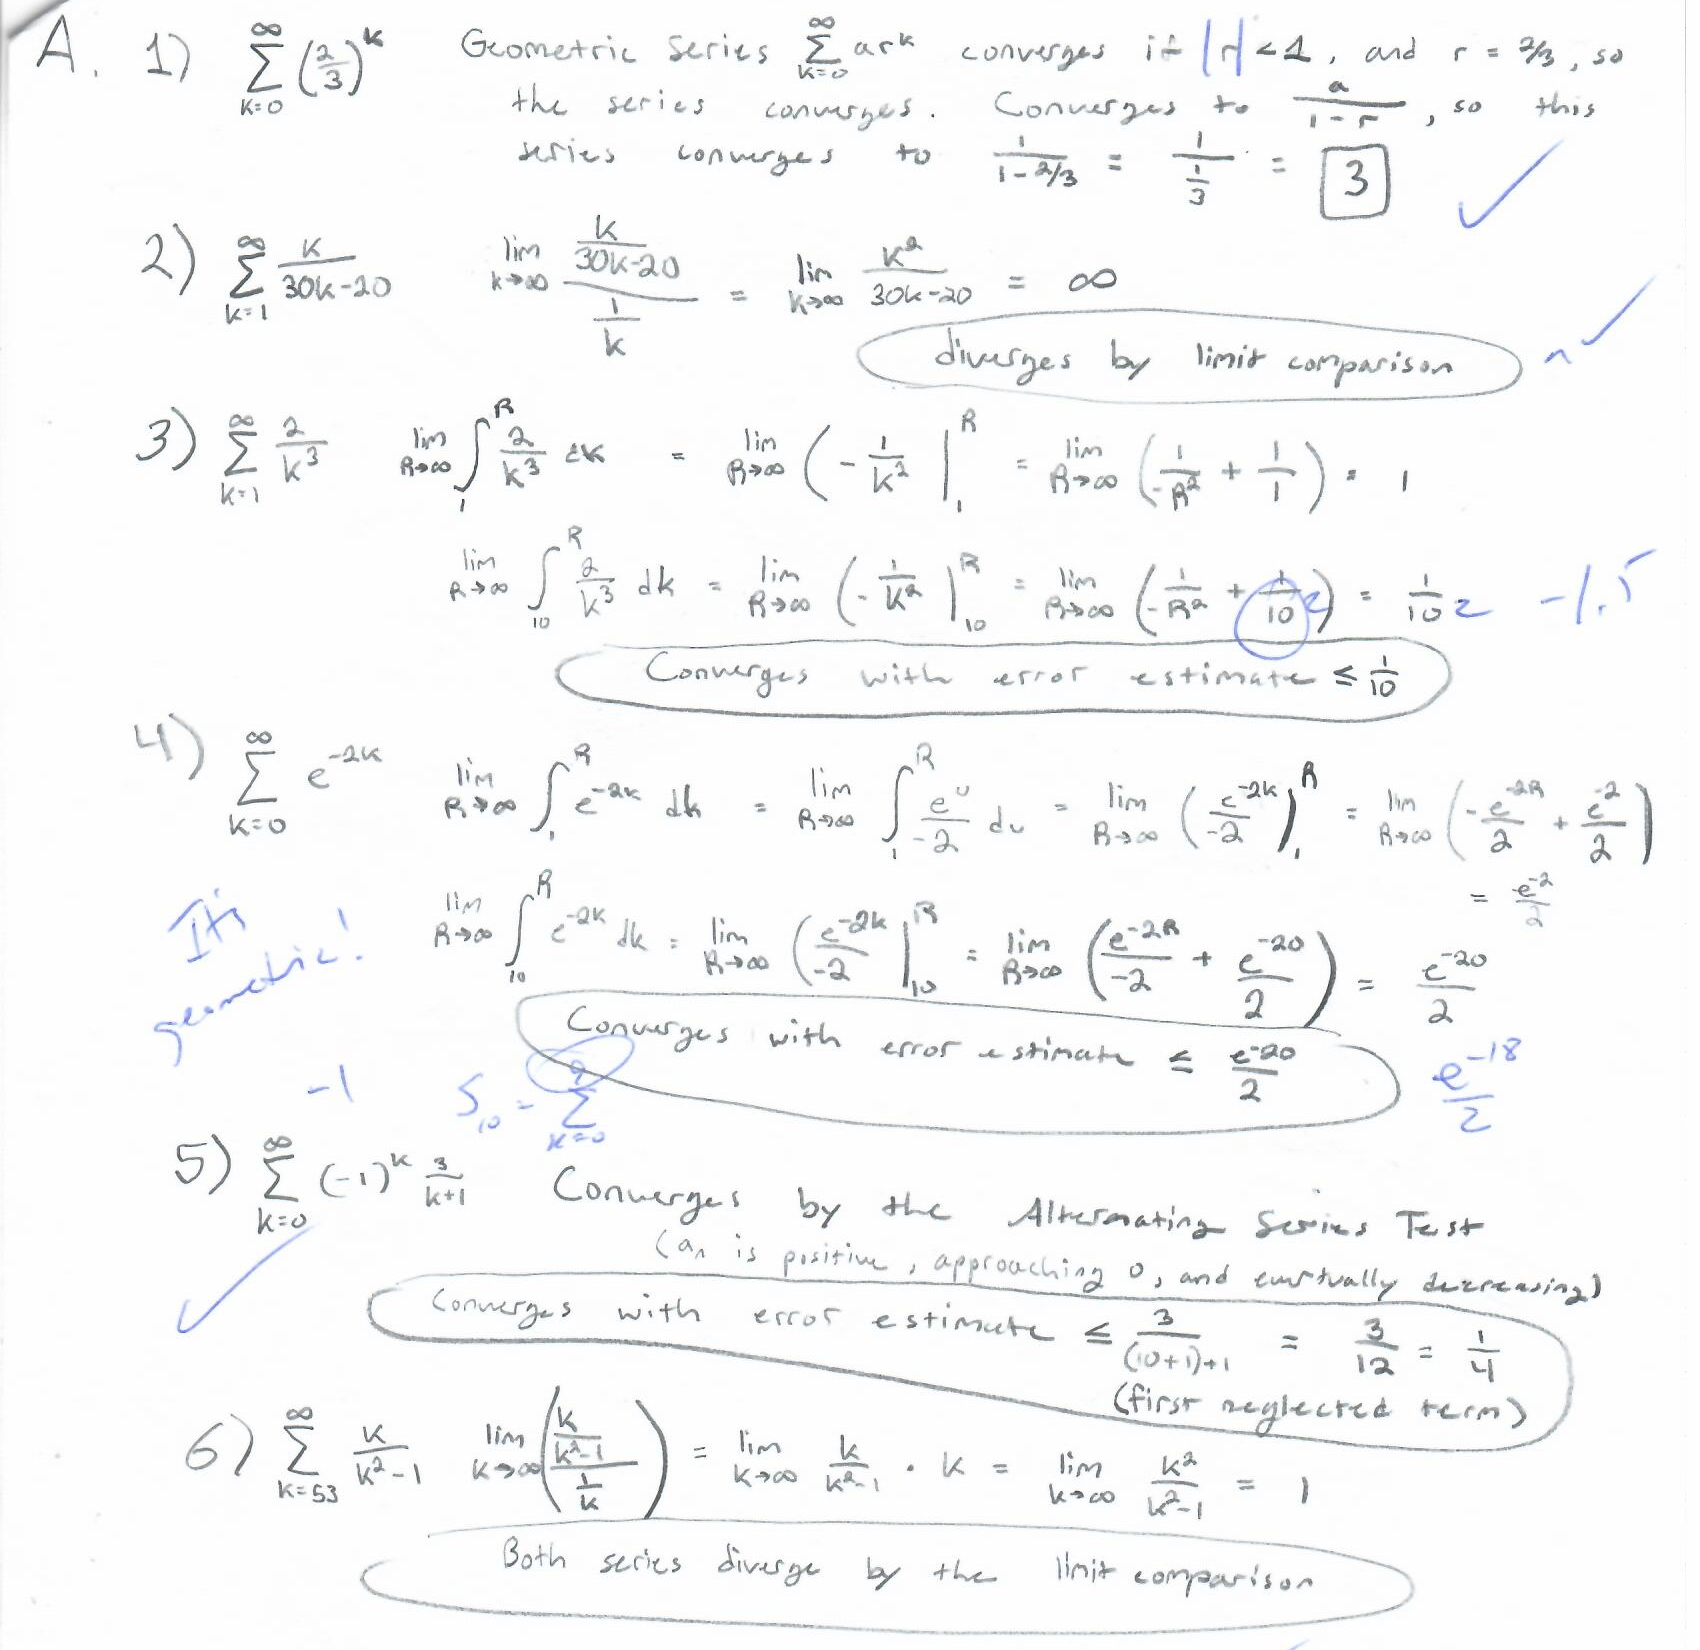 A. 1) ∞ Σ k=0 (2/3)^k Geometric Series ∞ Σ k=0 ar^k converges if |r| < 1, and r = 2/3, so
the series converges. Converges to a/(1-r), so this
series converges to 1/(1-2/3) = 1/(1/3) = 3 ✓
2) ∞ Σ k=1 k/(30k-20) lim k→∞ (k/(30k-20))/(1/k) = lim k→∞ k²/(30k-20) = ∞
diverges by limit comparison ~ ✓
3) ∞ Σ k=1 2/k³ lim R→∞ ∫₁^R 2/k³ dk = lim R→∞ (-1/k² |₁^R = lim R→∞ (1/-R² + 1/1) = 1
lim R→∞ ∫₁₀^R 2/k³ dk = lim R→∞ (-1/k² |₁₀^R = lim R→∞ (1/-R² + 1/10²) = 1/10² -1.5
Converges with error estimate ≤ 1/10
4) ∞ Σ k=0 e^-2k lim R→∞ ∫₁^R e^-2k dk = lim R→∞ ∫₁^R e^u/-2 du = lim R→∞ (e^-2k/-2)₁^R = lim R→∞ (-e^-2R/2 + e^-2/2)
= e^-2/2
It's geometric! lim R→∞ ∫₁₀^R e^-2k dk = lim R→∞ (e^-2k/-2 |₁₀^R = lim R→∞ (e^-2R/-2 + e^-20/2) = e^-20/2
Converges with error estimate ≤ e^-20/2
-1 S₁₀ = 9 Σ k=0 e^-18/2
5) ∞ Σ k=0 (-1)^k 3/(k+1) Converges by the Alternating Series Test
(aₙ is positive, approaching 0, and eventually decreasing)
✓ Converges with error estimate ≤ 3/((10+1)+1) = 3/12 = 1/4
(first neglected term)
6) ∞ Σ k=53 k/(k²-1) lim k→∞ ((k/(k²-1))/(1/k)) = lim k→∞ k/(k²-1) · k = lim k→∞ k²/(k²-1) = 1
Both series diverge by the limit comparison